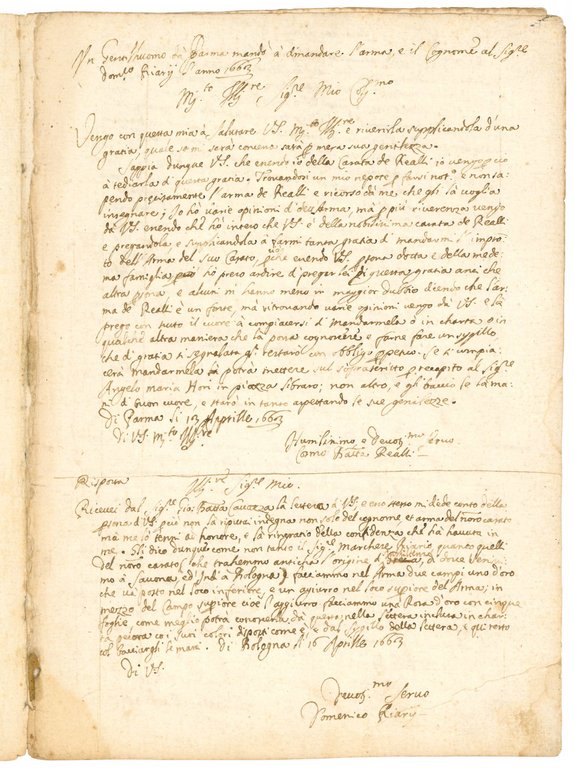 Un Gentilhuomo da Parma mandò à dimandare l'arma, e il Cognome al Sig.re
Dom.co Riarij l'anno 1663
M.to Ill.re Sig.re Mio
Vengo con questa mia à salutare V.S. M.to Ill.re e riverirla supplicandola d'una
gratia, quale so mi sarà concessa sarà p mera sua gentilezza.
Sappia dunque V.S. che essendo io della Casata de Realli io vengo
à tediarla di questa gratia. Trovandosi un mio nepote e non sa,
pendo l'arma de Realli è ricorso da me che gli la voglia
insegnare; Io hò varie opinioni di dett'Arma, mà p più riverenza vengo
da V.S. essendo che hò inteso che V.S. è della nobilissima casata de Realli
e pregandola e supplicandola à farmi tanta gratia di mandarmi l'impron,
to dell'Arma del suo Casato, essendo V.S. psona dotta e della mede,
ma famiglia hò preso ardire di pregar lei di questa gratia anzi che
altra psona, e alcuni mi hanno messo in maggior dubbio dicendo che l'ar,
ma de Realli è un forte, mà ritrovando varie opinioni vengo da V.S. e la
prego con tutto il cuore à compiacersi di Mandarmela ò in charta ò in
qualche altra maniera che la possa cognoscere e farne fare un sigillo
che di gratia sì segnalata gli restarò con obbligo ppetuo. Se si compia,
cerà mandarmela la potrà mettere sul soprascritto recapito al Sig.re
Angelo Maria Hori in piazza libraro; non altro, e gli bascio le ma,
ni di buon cuore, e starò in tanto aspettando le sue gratie.
Di Parma li 13 Aprille 1663
Di V.S. M.to Ill.re
Humilissimo e Devot.mo Servo
Como Batta Realli
Risposta
Ill.re Sig.re Mio.
Ricevei dal Sig.re Gio: Batta la lettera di V.S., e esso stesso mi diede conto della
psona di V.S. può non la riputai indegna non solo del cognome et arma del nostro casato
mà me lo tenni ad honore, e la ringratio della confidenza che hà havuta in
me. Gli dico dunque come non tanto il Sig.re Marchese Riario quanto quelli
del nostro casato che trahemmo anticha l'origine di di dove Veni,
mo à Savona, ed Indi à Bologna facciammo nel Arma due campi uno d'oro
che và posto nel loco inferiore, e un azzurro nel loco supiore del Arma; in
mezzo del Campo supiore cioè l'azzurro facciammo una Rosa d'oro con cinque
foglie, come meglio potrà conoscerla da questa nella lettera inclusa in char,
ta pecora coi suoi colori disposti come è, e dal sigillo della lettera, e qui resto
col basciargli le mani. Di Bologna li 16 Aprille 1663
Di V.S.
Devot.mo Servo
Domenico Riarij